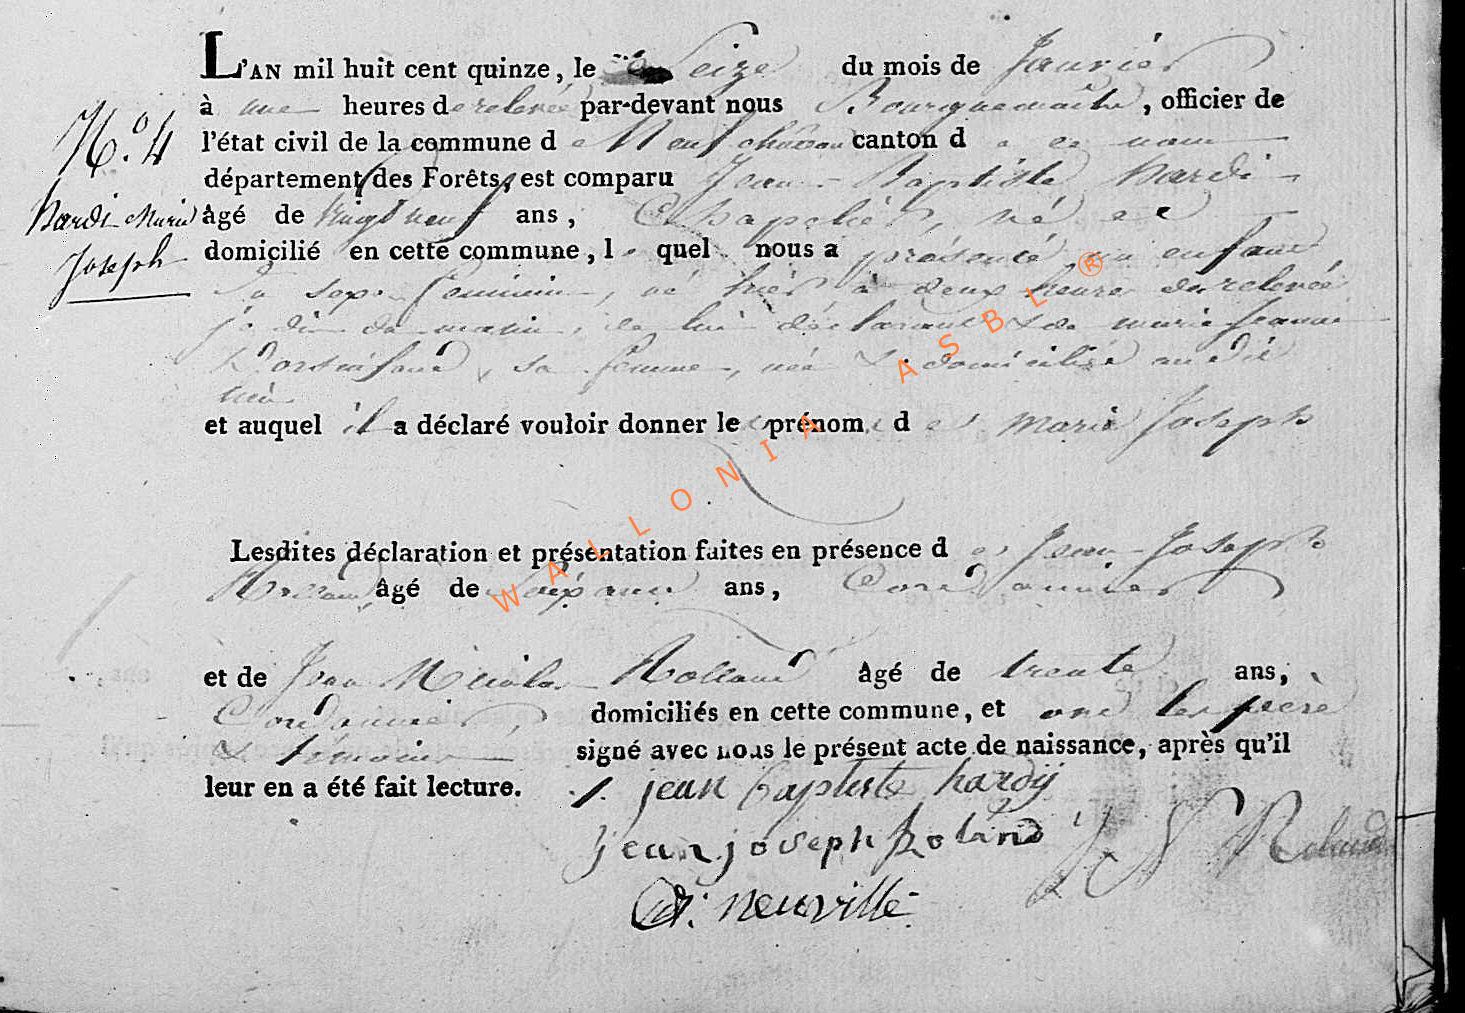 L'AN mil huit cent quinze, le Seize du mois de Janvier
à une heures de relevée par-devant nous Bourguemaître, officier de
l'état civil de la commune de Neufchâteau canton d e ce nom
N.o 4
département des Forêts, est comparu Jean Baptiste hardi
hardi Marie
Joseph
âgé de vingt neuf ans, Chapelier, né et
domicilié en cette commune, lequel nous a présenté un enfant
du sexe féminin, né hier à deux heures de relevée
de lui déclarant & de marie jeanne
sa femme, née & domiciliée audit
lieu
et auquel il a déclaré vouloir donner les prénoms des marie Joseph
Lesdites déclaration et présentation faites en présence des Jean-Joseph
Rolland âgé de ans, Cordonnier
et de Jean Nicolas Rolland âgé de trente ans,
Cordonnier, domiciliés en cette commune, et ont les père
& témoins signé avec nous le présent acte de naissance, après qu'il
leur en a été fait lecture. jean baptiste hardij
jean joseph Roland J N Roland
neuville
WALLONIA ASBL ®